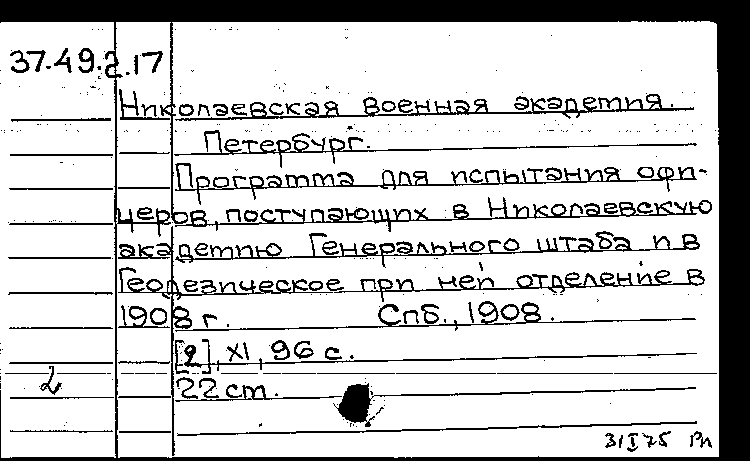 37.49.2.17
Николаевская военная академия.
Петербург.
Программа для испытания офи-
церов, поступающих в Николаевскую
академию Генерального штаба и в
Геодезическое при ней отделение в
1908 г. Спб., 1908.
[2], XI, 96 с.
2 22 cm.
31 I 75